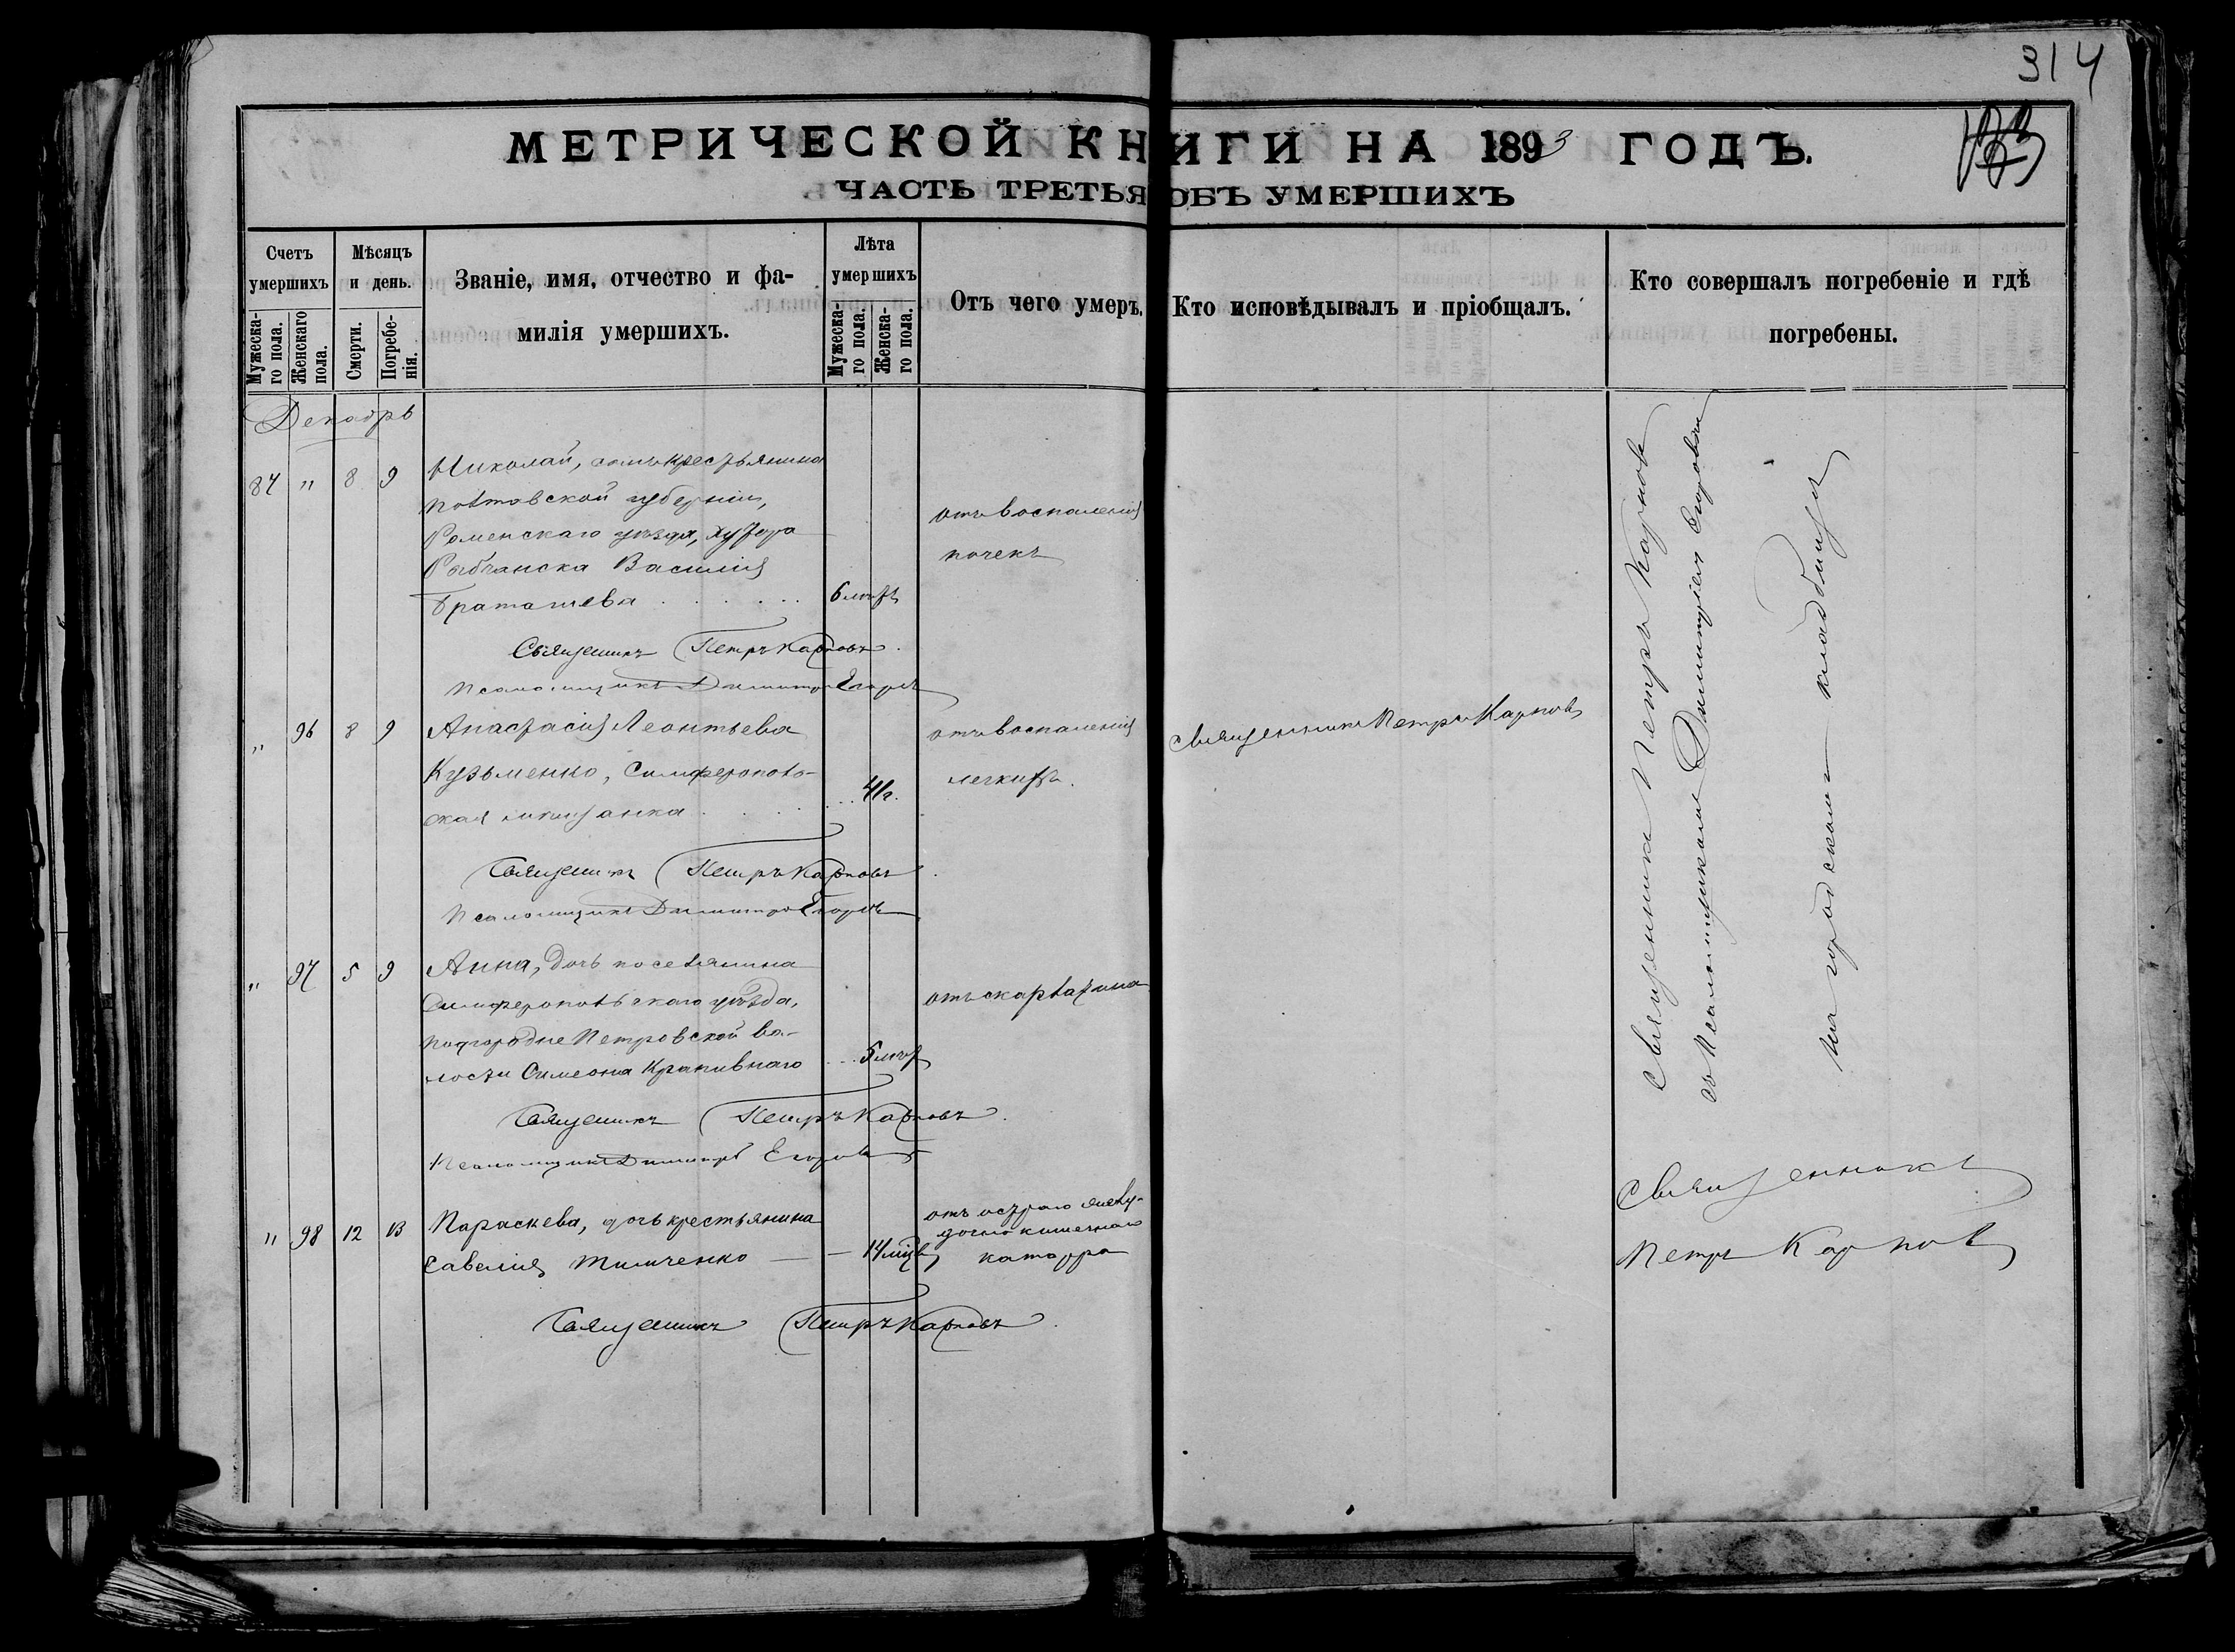 314
МЕТРИЧЕСКОЙ КНИГИ НА 1893 ГОДЪ.
ЧАСТЬ ТРЕТЬЯ ОБЪ УМЕРШИХЪ
Счетъ умершихъ
Мѣсяцъ и день.
Званіе, имя, отчество и фа-
милія умершихъ.
Лѣта умершихъ
Отъ чего умеръ.
Кто исповѣдывалъ и пріобщалъ.
Кто совершалъ погребеніе и гдѣ
погребены.
Мужеска-
го пола.
Женскаго
пола.
Смерти.
Погребе-
нія.
Мужеска-
го пола.
Женска-
го пола.
Декабрь
87 " 8 9 Николай, сынъ крестьянина
Полтавской губерніи,
Роменскаго уѣзда, хутора
Василія
6 лѣтъ
отъ воспаленія
почекъ
Священникъ Петръ Карповъ.
Псаломщикъ Димитрій Егоровъ
" 96 8 9 Анастасія Леонтьева
Кузьменко, Симферополь-
ская мѣщанка . . . . . . 41 г.
отъ воспаленія
легкихъ.
Священникъ Петръ Карповъ
Священникъ Петръ Карповъ.
Псаломщикъ Димитрій Егоровъ
" 97 5 9 Анна, дочь поселянина
Симферопольскаго уѣзда,
Подгородне Петровской во-
лости Симеона Крапивнаго . . . 5 лѣтъ
отъ скарлатина
Священникъ Петръ Карповъ.
Псаломщикъ Димитрій Егоровъ
" 98 12 13 Параскева, дочь крестьянина
Савелія Тимченко — — 14 мѣс.
отъ остраго желу-
дочно кишечнаго
катарра
Священникъ Петръ Карповъ.
Священникъ Петръ Карповъ
съ Псаломщикомъ Димитріемъ Егоровымъ
на городскомъ кладбищѣ
Священникъ
Петръ Карповъ